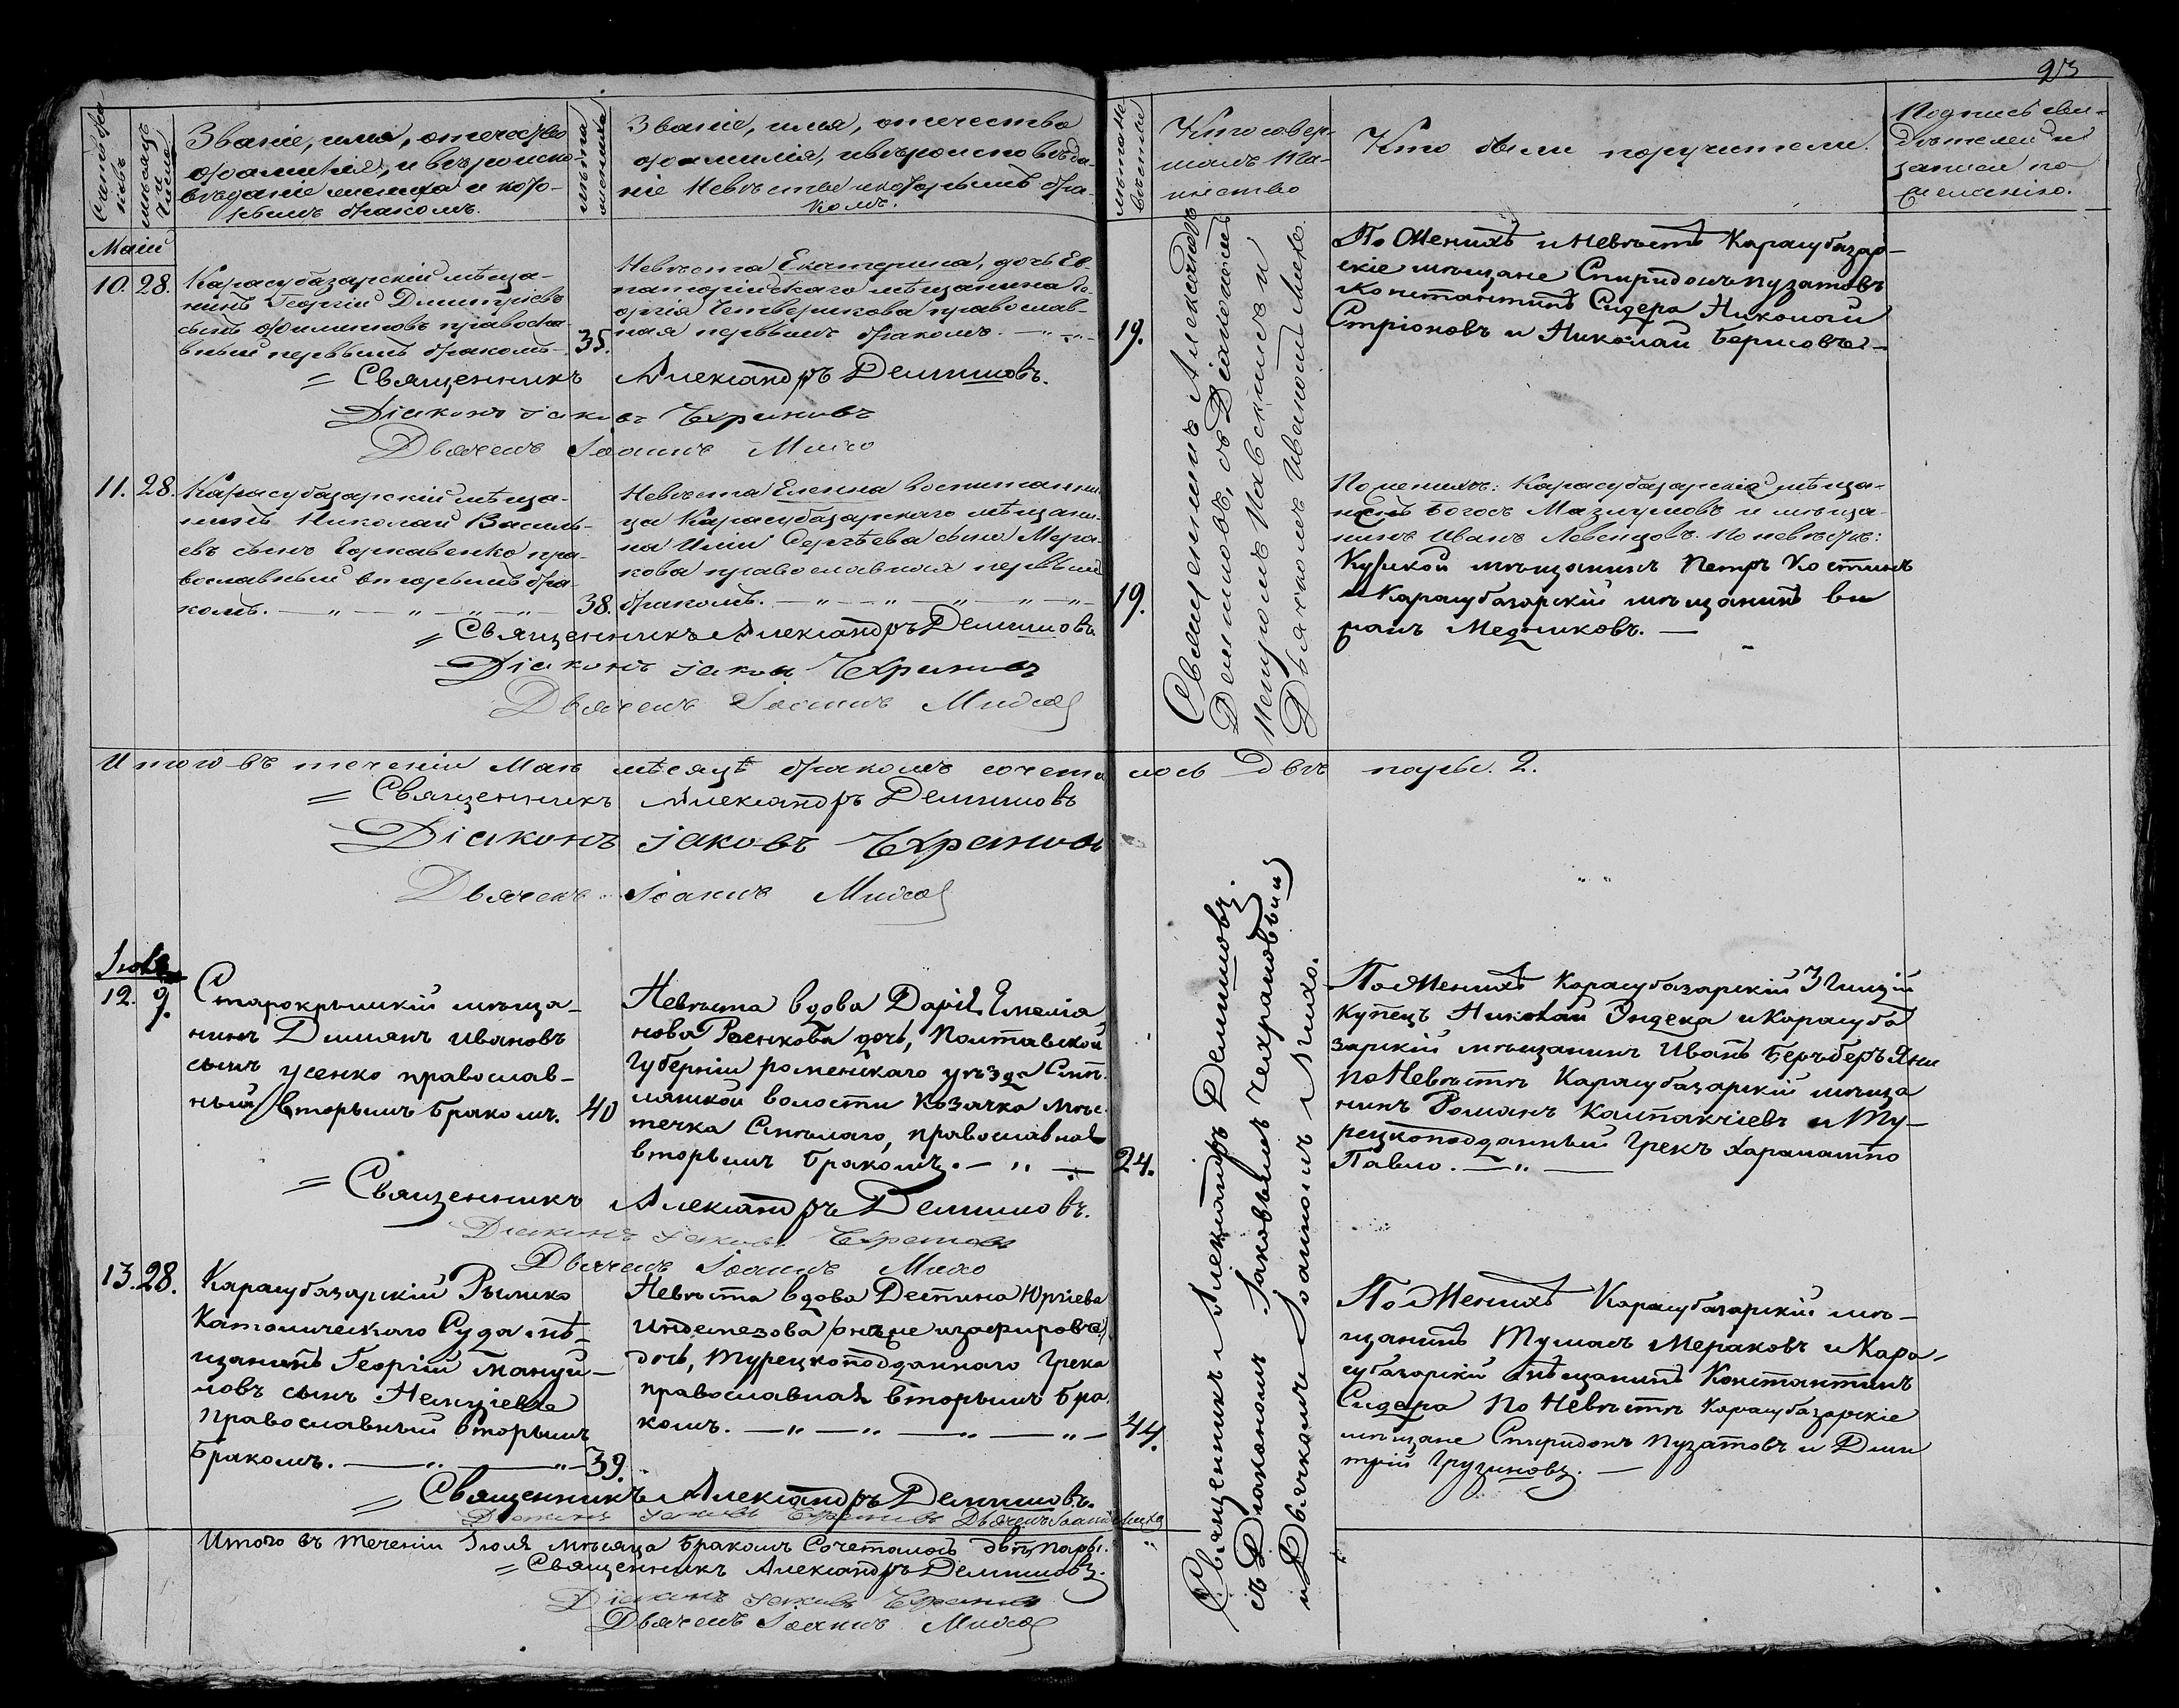 93
Счетъ бра
ковъ
мѣсяцъ
и
число
Званіе, имя, отечество
фамилія, и вѣроиспо-
вѣданіе жениха и кото-
рымъ бракомъ.
лѣта
жениха
Званіе, имя, отечество
фамилія, и вѣроисповѣда-
ніе Невѣсты и которымъ бра-
комъ.
лѣта не
вѣсты
Кто совер-
шалъ таи-
нство
Кто были поручители.
Подпись сви-
дѣтелей и
записи по
желанію.
Маій
10. 28.
Карасубазарскій мѣща-
нинъ Георгій Димитріевъ
сынъ Филиповъ правосла-
вный первымъ бракомъ.
35.
Невѣста Екатерина, дочь Ев-
паторійскаго мѣщанина Ге-
оргія Четверикова православ-
ная первымъ бракомъ.
19.
Священникъ Александръ
Демишовъ, съ Діакономъ
Дьячкомъ Иваномъ Михо.
По Женихѣ и Невѣстѣ Карасубазар-
скіе мѣщане Спиридонъ Пузатовъ
Константинъ Сидера Николай
Стріоновъ и Николай
= Священникъ Александръ Демишовъ.
Діаконъ Іаковъ Чехрановъ
Дьячекъ Іоаннъ Михо
11. 28.
Карасубазарскій мѣща-
нинъ Николай Василь-
евъ сынъ Горкавенко пра-
вославный вторымъ бра-
комъ.
38.
Невѣста Елена воспитанни-
ца Карасубазарскаго мѣщани-
на Иліи Сергѣева сына Мера-
кова православная первымъ
бракомъ.
19.
По женихѣ: Карасубазарскій мѣща-
нинъ Богосъ Мазлумовъ и мѣща-
нинъ Иванъ Левенцовъ. По невѣстѣ:
Курской мѣщанинъ Петръ Костинъ
и Карасубазарскій мѣщанинъ
Медниковъ.
= Священникъ Александръ Демишовъ
Діаконъ Іаковъ Чехрановъ
Дьячекъ Іоаннъ Михо
Итого въ теченіи Маія мѣсяцѣ бракомъ сочеталось Двѣ пары. 2.
= Священникъ Александръ Демишовъ
Діаконъ Іаковъ Чехрановъ
Дьячекъ Іоаннъ Михо
12. 9.
Старокрымскій мѣща-
нинъ Диміянъ Ивановъ
сынъ Усенко православ-
ный вторымъ бракомъ.
40
Невѣста вдова Дарія Емеліа-
нова дочь, Полтавской
Губерніи роменскаго уѣзда
волости Козачка мѣс-
течка Смѣлаго, православная
вторымъ бракомъ.
24.
Священникъ Александръ Демишовъ
съ Діакономъ Іаковымъ Чехрановымъ
и Дьячкомъ Іоанномъ Михо.
По Женихѣ Карасубазарскій 3 Гилдіи
Купецъ Николай Индека и Карасуба
зарскій мѣщанинъ Иванъ
по Невѣстѣ Карасубазарскій мѣща
нинъ Романъ Калпакчіевъ и Ту-
рецкоподданный Грекъ Харалампо
Павло.
= Священникъ Александръ Демишовъ.
Діаконъ Іаковъ Чехрановъ
Дьячекъ Іоаннъ Михо
13. 28.
Карасубазарскій Римско
Католическаго Суда мѣ-
щанинъ Георгій Мануи-
ловъ сынъ
православный вторымъ
бракомъ.
39.
Невѣста вдова Деспина Юргіева
дочь, Турецкоподданнаго Грека
православная вторымъ бра
комъ.
44.
По Женихѣ Карасубазарскій мѣ-
щанинъ Тумасъ Мераковъ и Кара-
субазарскій мѣщанинъ Константинъ
Сидера по Невѣстѣ Карасубазарскіе
мѣщане Спиридонъ Пузатовъ и Дми
трій Грузиновъ.
= Священникъ Александръ Демишовъ.
Діаконъ Іаковъ Чехрановъ Дьячекъ Іоаннъ Михо
Итого въ теченіи Іюля мѣсяца бракомъ Сочеталось двѣ пары.
= Священникъ Александръ Демишовъ.
Діаконъ Іаковъ Чехрановъ
Дьячекъ Іоаннъ Михо